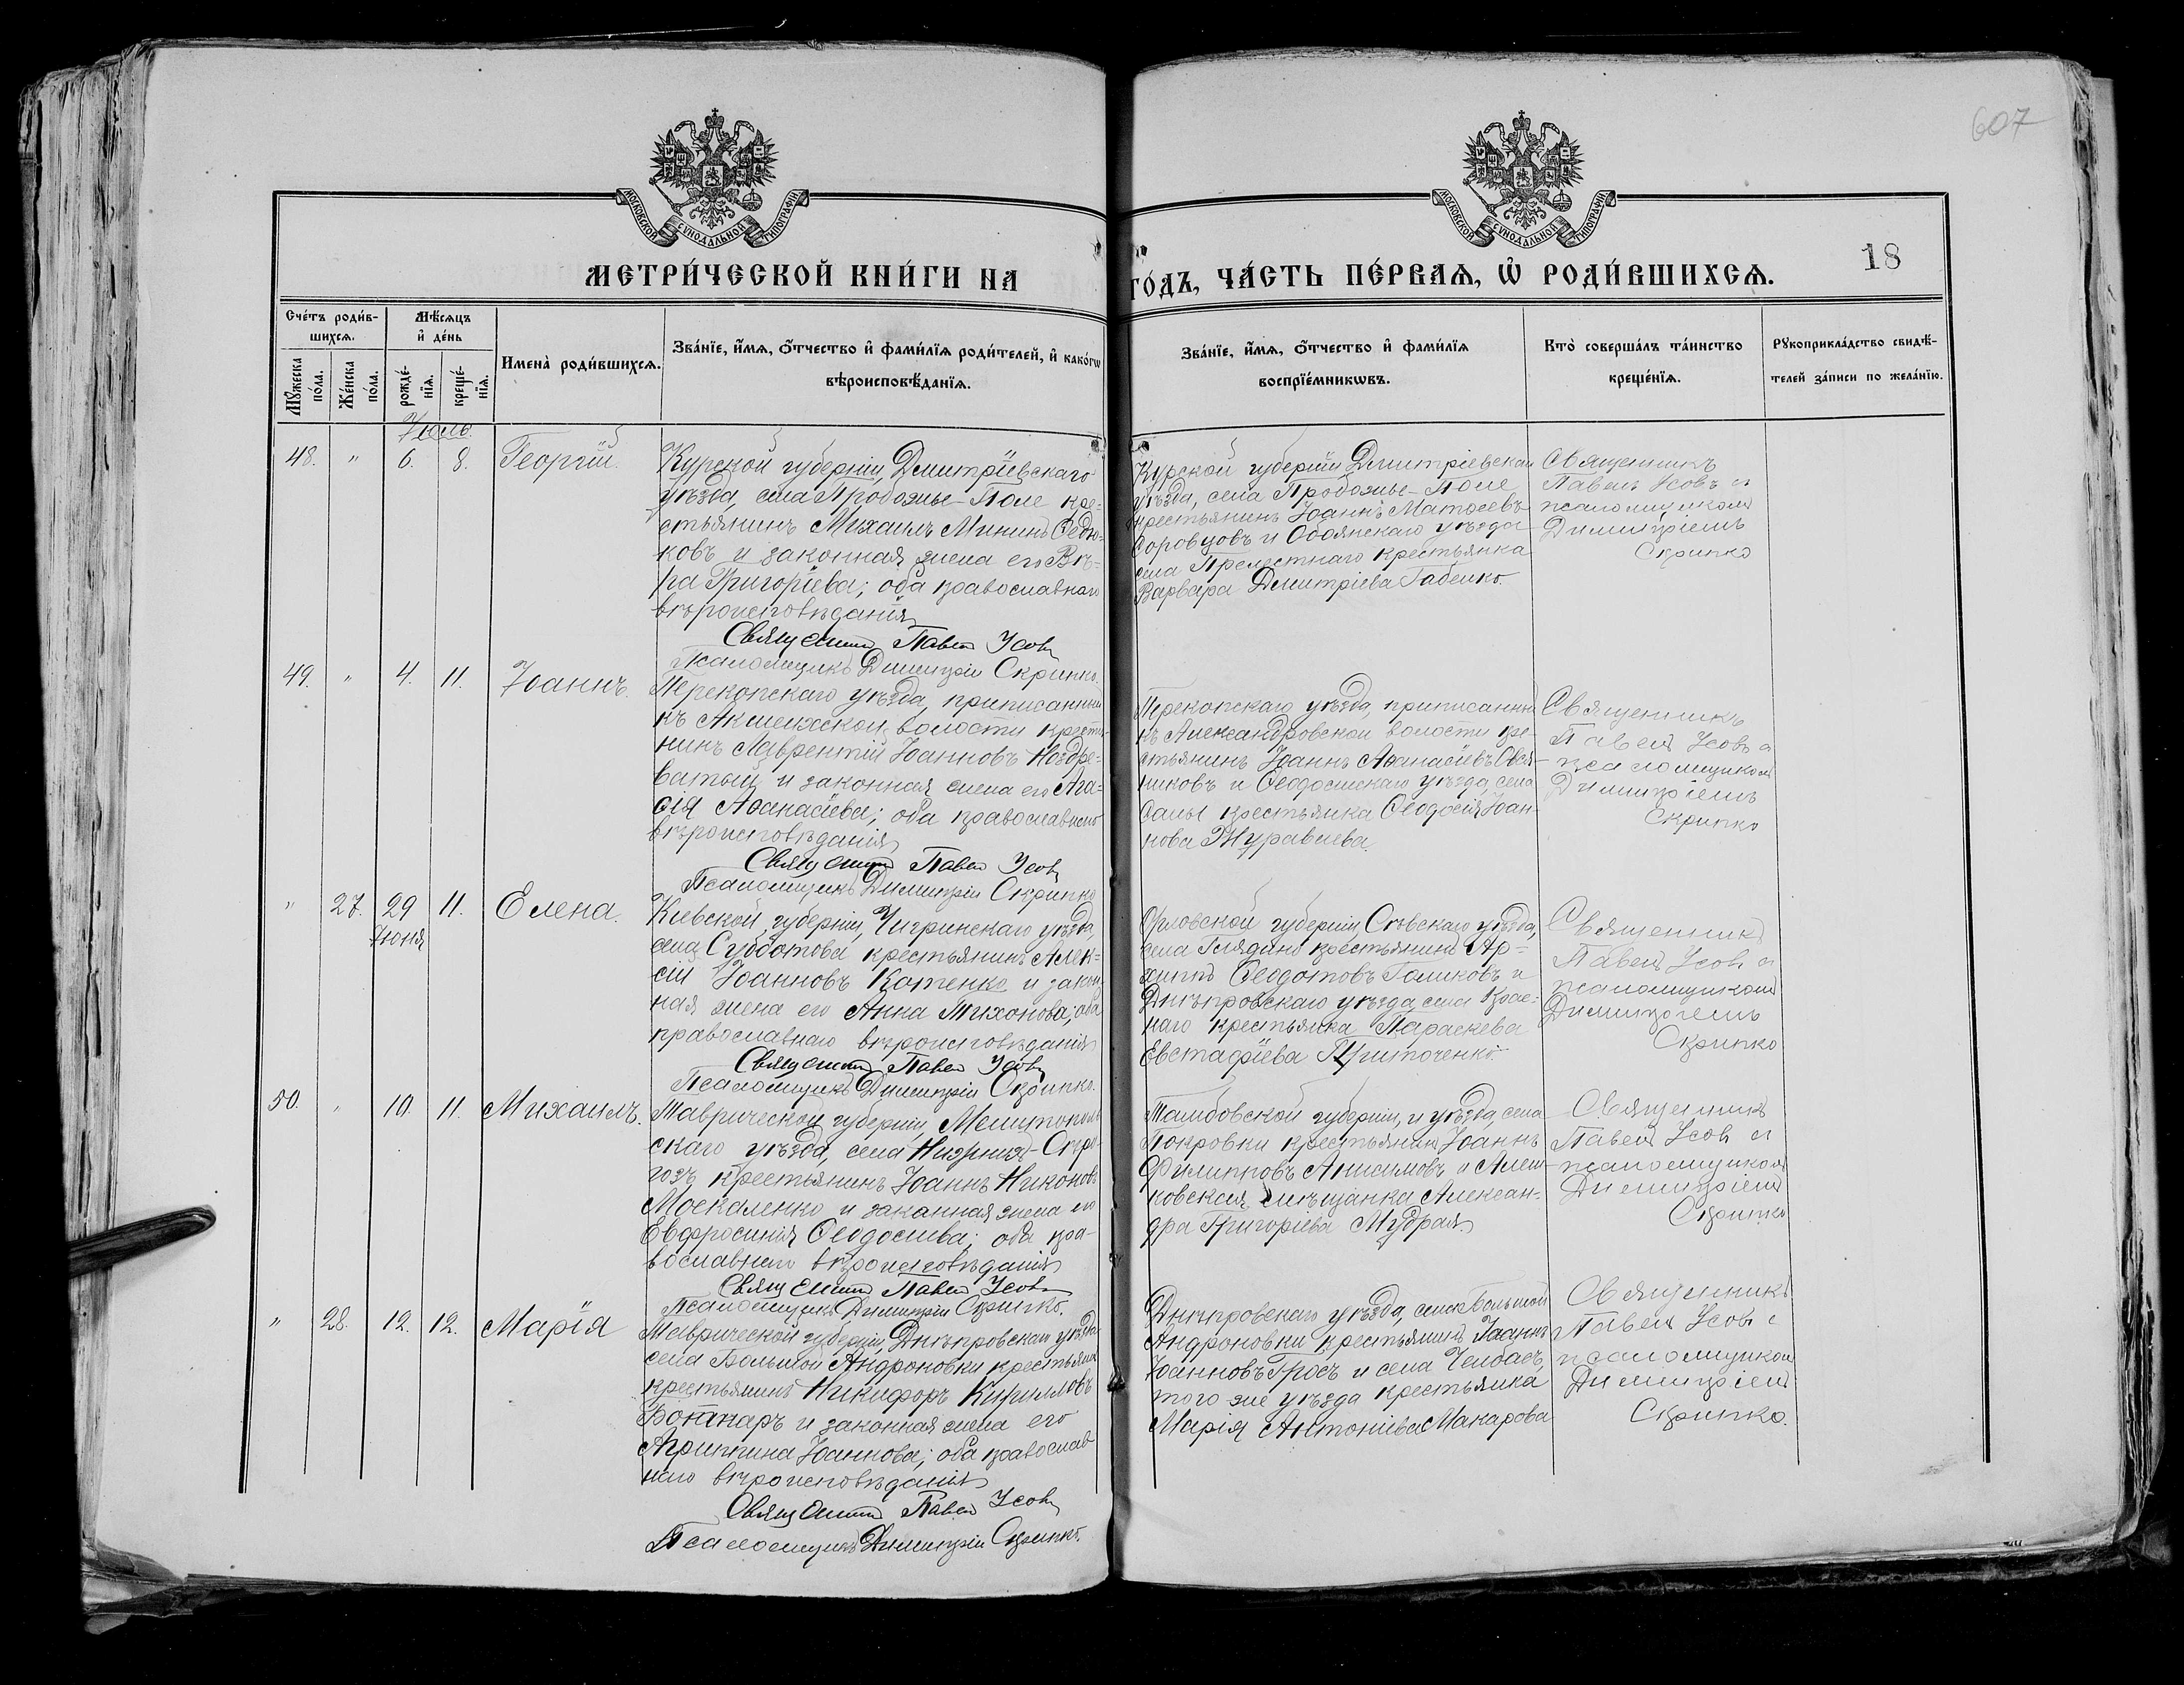 607
МОСКОВСКОЙ СѴНОДАЛЬНОЙ ТИПОГРАФІИ
МОСКОВСКОЙ СѴНОДАЛЬНОЙ ТИПОГРАФІИ
18
МЕТРИ́ЧЕСКОЙ КНИ́ГИ НА ГО́ДЪ, ЧА́СТЬ ПЕ́РВАѦ, Ѡ҆ РОДИ́ВШИХСѦ.
Сче́тъ роди́в-
шихсѧ.
Мꙋ́жеска по́ла.
Же́нска по́ла.
Мѣ́сѧцъ
и҆ де́нь
рожде́-
нїѧ.
креще́-
нїѧ.
Имена̀ роди́вшихсѧ.
Зва́нїе, и҆́мѧ, ѻ҆́тчество и҆ фами́лїѧ роди́телей, и҆ како́гѡ
вѣроисповѣ́данїѧ.
Зва́нїе, и҆́мѧ, ѻ҆́тчество и҆ фами́лїѧ
воспрїе́мникѡвъ.
Кто̀ соверша́лъ та́инство
креще́нїѧ.
Рꙋкоприкла́дство свидѣ́-
телей за́писи по жела́нїю.
Іюль.
48. " 6. 8. Георгій.
Курской губерніи, Дмитріевскаго
уѣзда, села Пробожье-Поле кре=
стьянинъ Михаилъ Мининъ Ѳедю-
ковъ и законная жена его Вѣ=
ра Григоріева; оба православнаго
вѣроисповѣданія
Священникъ Павелъ Усовъ
Псаломщикъ Димитрій Скрипко.
Курской губерніи Дмитріевскаго
уѣзда, села Пробожье-Поле
крестьянинъ Іоаннъ Матѳеевъ
и Обоянскаго уѣзда
села Прелестнаго крестьянка
Варвара Дмитріева
Священникъ
Павелъ Усовъ съ
псаломщикомъ
Димитріемъ
Скрипко
49. " 4. 11. Іоаннъ.
Перекопскаго уѣзда, приписанный
къ волости крестья-
нинъ Лаврентій Іоанновъ Ноздре=
ватый и законная жена его Ага=
ѳія Аѳанасіева; оба православнаго
вѣроисповѣданія
Священникъ Павелъ Усовъ
Псаломщикъ Димитрій Скрипко
Перекопскаго уѣзда, приписанный
къ Александровской волости кре-
стьянинъ Іоаннъ Аѳанасіевъ Овсян-
никовъ и Ѳеодосійскаго уѣзда, села
Салы крестьянка Ѳеодосія Іоан-
нова Журавлева.
Священникъ
Павелъ Усовъ съ
псаломщикомъ
Димитріемъ
Скрипко
" 27. 29 11. Елена.
Іюня
Кіевской губерніи, Чигринскаго уѣзда,
села Субботова крестьянинъ Алек=
сій Іоанновъ Котенко и закон-
ная жена его Анна Тихонова; оба
православнаго вѣроисповѣданія
Священникъ Павелъ Усовъ
Псаломщикъ Димитрій Скрипко.
Орловской губерніи, Сѣвскаго уѣзда,
села Глядино крестьянинъ Ар=
хиппъ Ѳеодотовъ Голиковъ и
Днѣпровскаго уѣзда, села Крас-
наго крестьянка Параскева
Евстафіева
Священникъ
Павелъ Усовъ съ
псаломщикомъ
Димитріемъ
Скрипко
50. " 10. 11. Михаилъ.
Таврической губерніи, Мелитополь
скаго уѣзда, села Нижнихъ-Сѣро-
гозъ, крестьянинъ Іоаннъ Никоновъ
Москаленко и законная жена его
Евфросинія Ѳеодосіева; оба пра-
вославнаго вѣроисповѣданія
Священникъ Павелъ Усовъ
Псаломщикъ Димитрій Скрипко.
Тамбовской губерніи, и уѣзда, села
Покровки крестьянинъ Іоаннъ
Филипповъ Анисимовъ и Алеш-
ковская мѣщанка Алексан-
дра Григоріева Мудрая
Священникъ
Павелъ Усовъ съ
псаломщикомъ
Димитріемъ
Скрипко
" 28. 12. 12. Марія
Таврической губерніи, Днѣпровскаго уѣзда
села Большой Андроновки крестьянин
крестьянинъ Никифоръ Кирилловъ
Ботнаръ и законная жена его
Агриппина Іоаннова; оба православ
наго вѣроисповѣданія
Священникъ Павелъ Усовъ
Псаломщикъ Димитрій Скрипко.
Днѣпровскаго уѣзда, села Большой
Андроновки крестьянинъ Іоаннъ
Іоанновъ Гросъ и села Челбасъ,
того же уѣзда крестьянка
Марія Антоніева Макарова
Священникъ
Павелъ Усовъ съ
псаломщикомъ
Димитріемъ
Скрипко.